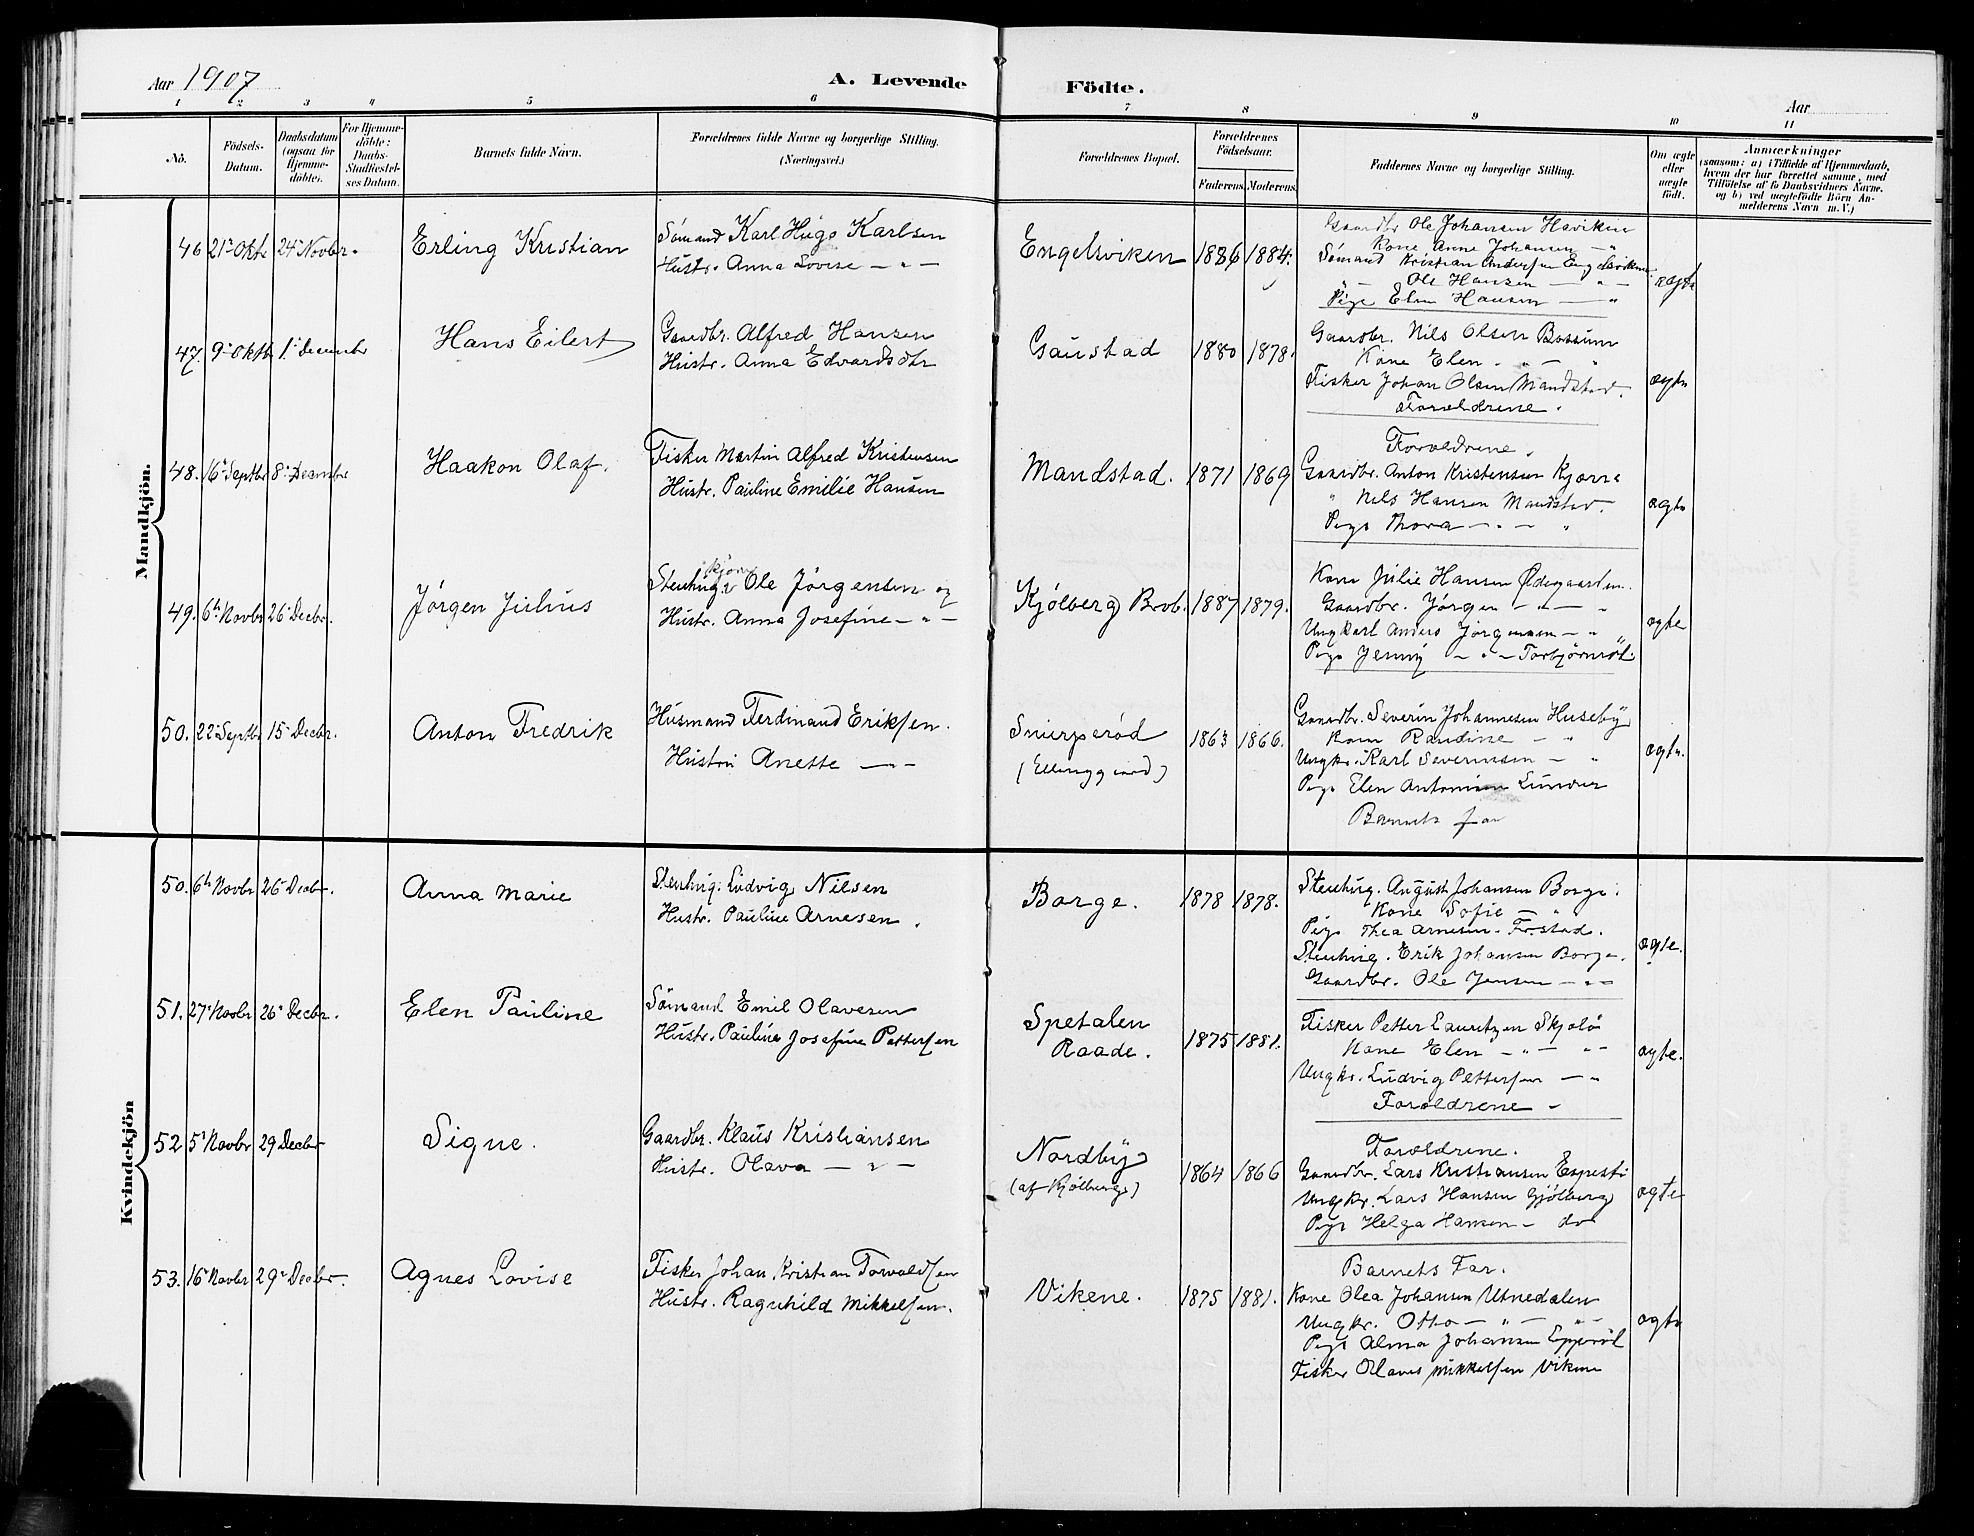 Aar 1907
A. Levende Födte.
Aar
1 2 3 4 5 6 7 8 9 10 11
No.
Födsels-Datum.
Daabsdatum (ogsaa for Hjemme-döbte).
For Hjemme-döbte: Daabs-Stadfæstel-ses Datum.
Barnets fulde Navn.
Forældrenes fulde Navne og borgerlige Stilling. (Næringsvei.)
Forældrenes Bopæl.
Forældrenes Födselsaar.
Faderens. Moderens.
Faddernes Navne og borgerlige Stilling.
Om ægte eller uægte födt.
Anmærkninger
(saasom: a) i Tilfælde af Hjemmedaab,
hvem der har forrettet samme, med
Tilföielse af to Daabsvidners Navne,
og b) ved uægtefödte Börn An-
melderens Navn m. V.)
Mandkjön.
46 21. Oktr 24. Novbr.
Erling Kristian
Sømand Karl Hugo Karlsen
Hustr. Anna Lovise — „ —
Engelsviken
1886 1884.
Gaardbr Ole Johansen Haviken
Kone Anne Johansen — „
Sømand Kristian Andersen Engelsviken
„ — Ole Hansen — „ —
Pige Elen Hansen — „
ægte
47. 9. Oktb 1. December
Hans Eilert
Gaardbr. Alfred Hansen
Hustr. Anna Edvardsdtr
Gaustad
1880 1878.
Gaardbr. Nils Olsen Bossum
Kone Elen „ — „
Fisker Johan Olsen Mandstad.
Forældrene.
ægte
48. 16. Septbr 8. Decembr
Haakon Olaf.
Fisker Martin Alfred Kristensen
Hustr. Pauline Emilie Hansen
Mandstad.
1871 1869
Forældrene.
Gaardbr. Anton Kristensen Kjærre
„ Nils Hansen Mandstad.
Pige Thora — „ — „
ægte
49. 6te Novbr 26. Decbr.
Jörgen Julius
Stenhug. Ole Jörgensen og
Hustr. Anna Josefine — „ —
Kjölberg Brob.
1887 1879.
Kone Julie Hansen Ødegaarden.
Gaardbr. Jörgen — „ — „
Ungkarl Anders Jörgensen — „
Pige Jenny — „ — Torbjörnröd.
ægte
50. 22. Septbr 15. Decbr.
Anton Fredrik
Husmand Ferdinand Eriksen.
Hustru Anette — „ —
Snierperöd
(Elling gaard)
1863 1866.
Gaardbr. Severin Johannesen Huseby
Kone Randine — „
Ungkr. Karl Severinsen — „
Pige Elen Antonisen Lunder
Barnets far
ægte.
Kvindekjön
50. 6te Novbr 26. Decbr.
Anna Marie
Stenhug. Ludvig Nilsen
Hustr. Pauline Arnesen.
Borge.
1878 1878.
Stenhug. August Johansen Borge.
Kone Sofie — „
Pige Thea Arnesen.
Stenhug. Erik Johansen Borge.
Gaardbr. Ole Jensen — „ —
ægte.
51. 27. Novbr 26. Decbr.
Elen Pauline
Sömand Emil Olavesen
Hustr. Pauline Josefine Pettersen
Spetalen
Raade.
1875 1881.
Fisker Petter Lauritzen Skjolö
Kone Elen — „ — „ —
Ungkr. Ludvig Pettersen — „
Forældrene —
ægte.
52 5. Novbr 29 Decbr
Signe.
Gaardbr. Klaus Kristiansen
Hustr. Olava — „ —
Nordby
(af Kjölberg)
1864 1866
Forældrene.
Gaardbr. Lars Kristiansen
Ungkr. Lars Hansen Gjölberg
Pige Helga Hansen — do
ægte
53. 16. Novbr 29. Decbr.
Agnes Lovise
Fisker Johan Kristian Torvaldsen
Hustr. Ragnhild Mikkelsen.
Vikene.
1875 1881.
Barnets Far.
Kone Olea Johansen Utnedalen
Ungkr. Otto — „ — „ —
Pige Alma Johansen
Fisker Olaves Mikkelsen Vikene
ægte